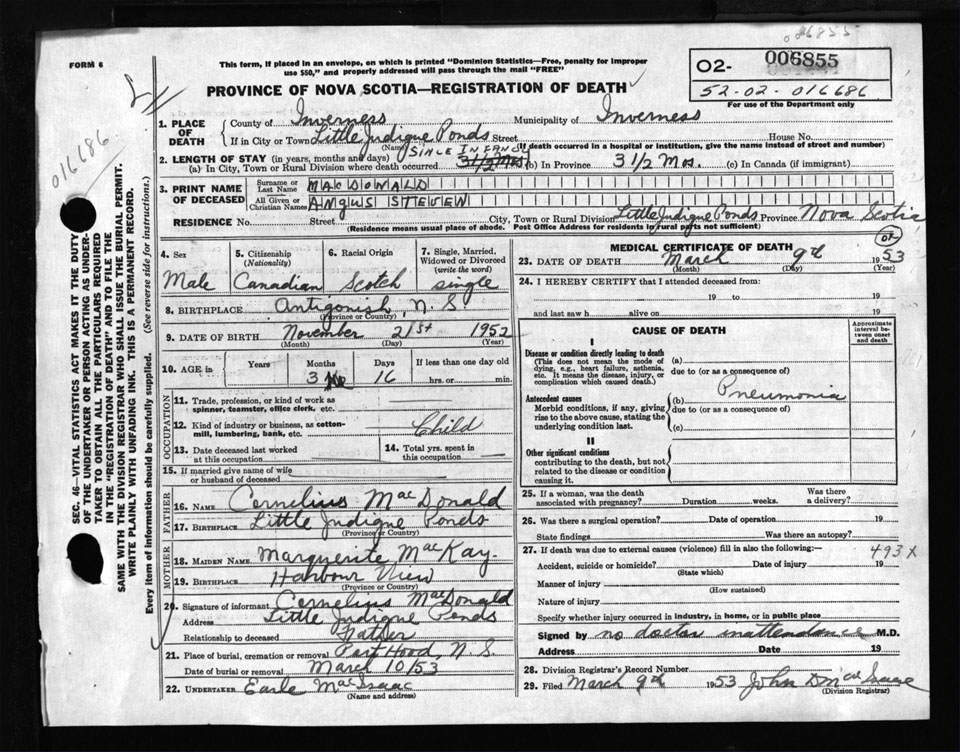 086855
FORM 6
This form, if placed in an envelope, on which is printed "Dominion Statistics—Free, penalty for improper
use $50," and properly addressed will pass through the mail "FREE"
O2- 006855
52-02-016686
For use of the Department only
PROVINCE OF NOVA SCOTIA—REGISTRATION OF DEATH
016686
SEC. 46—VITAL STATISTICS ACT MAKES IT THE DUTY
OF THE UNDERTAKER OR PERSON ACTING AS UNDER-
TAKER TO OBTAIN ALL THE PARTICULARS REQUIRED
IN THE "REGISTRATION OF DEATH" AND TO FILE THE
SAME WITH THE DIVISION REGISTRAR WHO SHALL ISSUE THE BURIAL PERMIT.
WRITE PLAINLY WITH UNFADING INK. THIS IS A PERMANENT RECORD.
Every item of information should be carefully supplied. (See reverse side for instructions.)
1. PLACE OF DEATH
County of Inverness Municipality of Inverness
If in City or Town Little Judique Ponds Street House No.
(Name) (If death occurred in a hospital or institution, give the name instead of street and number)
2. LENGTH OF STAY (in years, months and days) SINCE INFANCY
(a) In City, Town or Rural Division where death occurred 3 1/2 Mos. (b) In Province 3 1/2 Mos. (c) In Canada (if immigrant)
3. PRINT NAME OF DECEASED
Surname or Last Name MACDONALD
All Given or Christian Names ANGUS STEVEN
RESIDENCE No. Street City, Town or Rural Division Little Judique Ponds Province Nova Scotia
(Residence means usual place of abode. Post Office Address for residents in rural parts not sufficient)
4. Sex
Male
5. Citizenship (Nationality)
Canadian
6. Racial Origin
Scotch
7. Single, Married, Widowed or Divorced (write the word)
single
8. BIRTHPLACE Antigonish, N.S.
(Province or Country)
9. DATE OF BIRTH November 21st 1952
(Month) (Day) (Year)
10. AGE in Years Months Days If less than one day old
3 16 hrs. or min.
OCCUPATION
11. Trade, profession, or kind of work as
spinner, teamster, office clerk, etc.
12. Kind of industry or business, as cotton-
mill, lumbering, bank, etc. Child
13. Date deceased last worked
at this occupation
14. Total yrs. spent in
this occupation
15. If married give name of wife
or husband of deceased
FATHER
16. NAME Cornelius MacDonald
17. BIRTHPLACE Little Judique Ponds
(Province or Country)
MOTHER
18. MAIDEN NAME Marguerite MacKay
19. BIRTHPLACE Harbour View
(Province or Country)
20. Signature of informant Cornelius MacDonald
Address Little Judique Ponds
Relationship to deceased Father
21. Place of burial, cremation or removal Port Hood, N.S.
Date of burial or removal March 10/53
22. UNDERTAKER Earle MacIsaac
(Name and address)
MEDICAL CERTIFICATE OF DEATH
01
23. DATE OF DEATH March 9th 1953
(Month) (Day) (Year)
24. I HEREBY CERTIFY that I attended deceased from:
19 to 19
and last saw h alive on 19
CAUSE OF DEATH
Approximate interval between onset and death
I
Disease or condition directly leading to death (a)
(This does not mean the mode of dying, e.g., heart failure, asthenia, etc. It means the disease, injury, or complication which caused death.)
due to (or as a consequence of)
Antecedent causes (b) Pneumonia
Morbid conditions, if any, giving rise to the above cause, stating the underlying condition last.
due to (or as a consequence of)
(c)
II
Other significant conditions
contributing to the death, but not related to the disease or condition causing it.
25. If a woman, was the death
associated with pregnancy? Duration weeks. Was there a delivery?
26. Was there a surgical operation? Date of operation 19
State findings Was there an autopsy?
27. If death was due to external causes (violence) fill in also the following:— 493X
Accident, suicide or homicide? Date of injury 19
(State which)
Manner of injury
(How sustained)
Nature of injury
Specify whether injury occurred in industry, in home, or in public place
Signed by no doctor in attendance M.D.
Address Date 19
28. Division Registrar's Record Number
29. Filed March 9th 1953 John D MacIsaac
(Division Registrar)